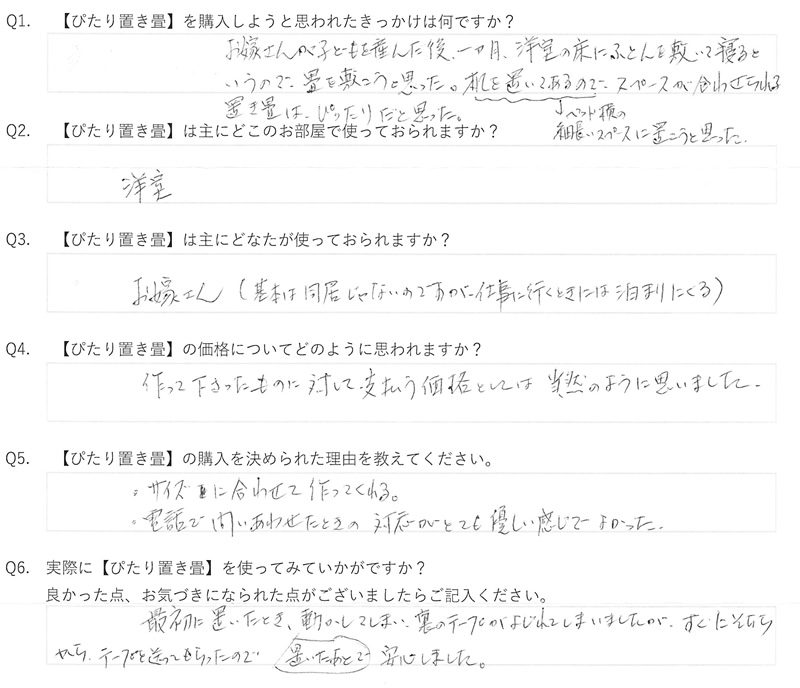 Q1. 【ぴたり置き畳】を購入しようと思われたきっかけは何ですか？
お嫁さんが子どもを産んだ後、一ヵ月、洋室の床にふとんを敷いて寝ると
いうので、畳を敷こうと思った。机を置いてあるので、スペースが合わせられる
置き畳は、ぴったりだと思った。
↓ベット横の
細長いスペースに置こうと思った。
Q2. 【ぴたり置き畳】は主にどこのお部屋で使っておられますか？
洋室
Q3. 【ぴたり置き畳】は主にどなたが使っておられますか？
お嫁さん（基本は同居じゃないのですが、仕事に行くときには泊まりにくる）
Q4. 【ぴたり置き畳】の価格についてどのように思われますか？
作って下さったものに対して支払う価格としては当然のように思いました。
Q5. 【ぴたり置き畳】の購入を決められた理由を教えてください。
・サイズに合わせて作ってくれる。
・電話で問いあわせたときの対応がとても優しい感じでよかった。
Q6. 実際に【ぴたり置き畳】を使ってみていかがですか？
良かった点、お気づきになられた点がございましたらご記入ください。
最初に置いたとき、動かしてしまい、裏のテープがよじれてしまいましたが、すぐにそちら
から、テープを送ってもらったので 置いたあとで 安心しました。